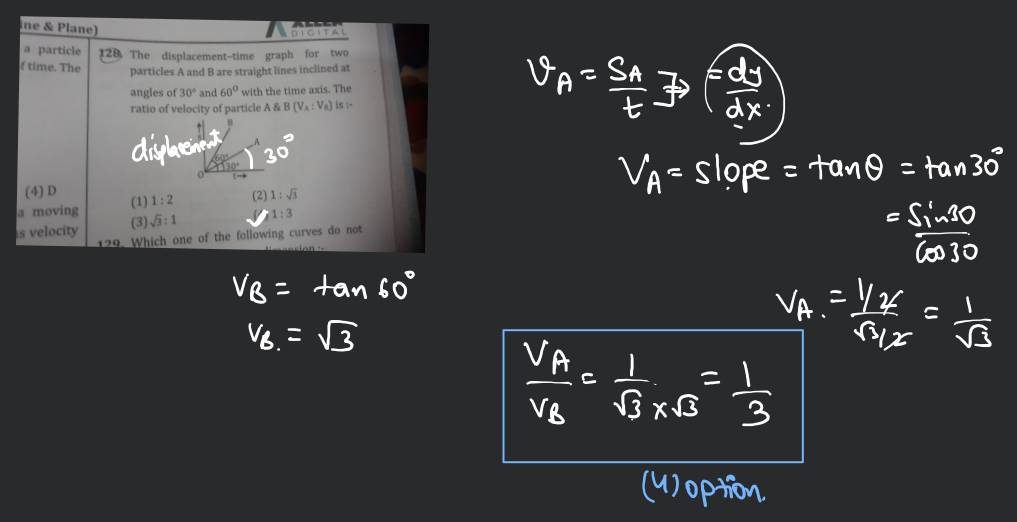 ine & Plane)
DIGITAL
a particle
f time. The
128. The displacement–time graph for two
particles A and B are straight lines inclined at
angles of 30° and 60° with the time axis. The
ratio of velocity of particle A & B (VA : VB) is :-
B
displacement
A
60°
30°
30°
O
t→
(4) D
a moving
s velocity
(1) 1 : 2
(2) 1 : √3
(3) √3 : 1
✓ 1 : 3
129. Which one of the following curves do not
VA = SA/t ⇒ = dy/dx
VA = slope = tanθ = tan30°
= Sin30/Cos30
VA. = 1/2/√3/2 = 1/√3
VB = tan 60°
VB. = √3
VA/VB = 1/√3×√3 = 1/3
(4) option.